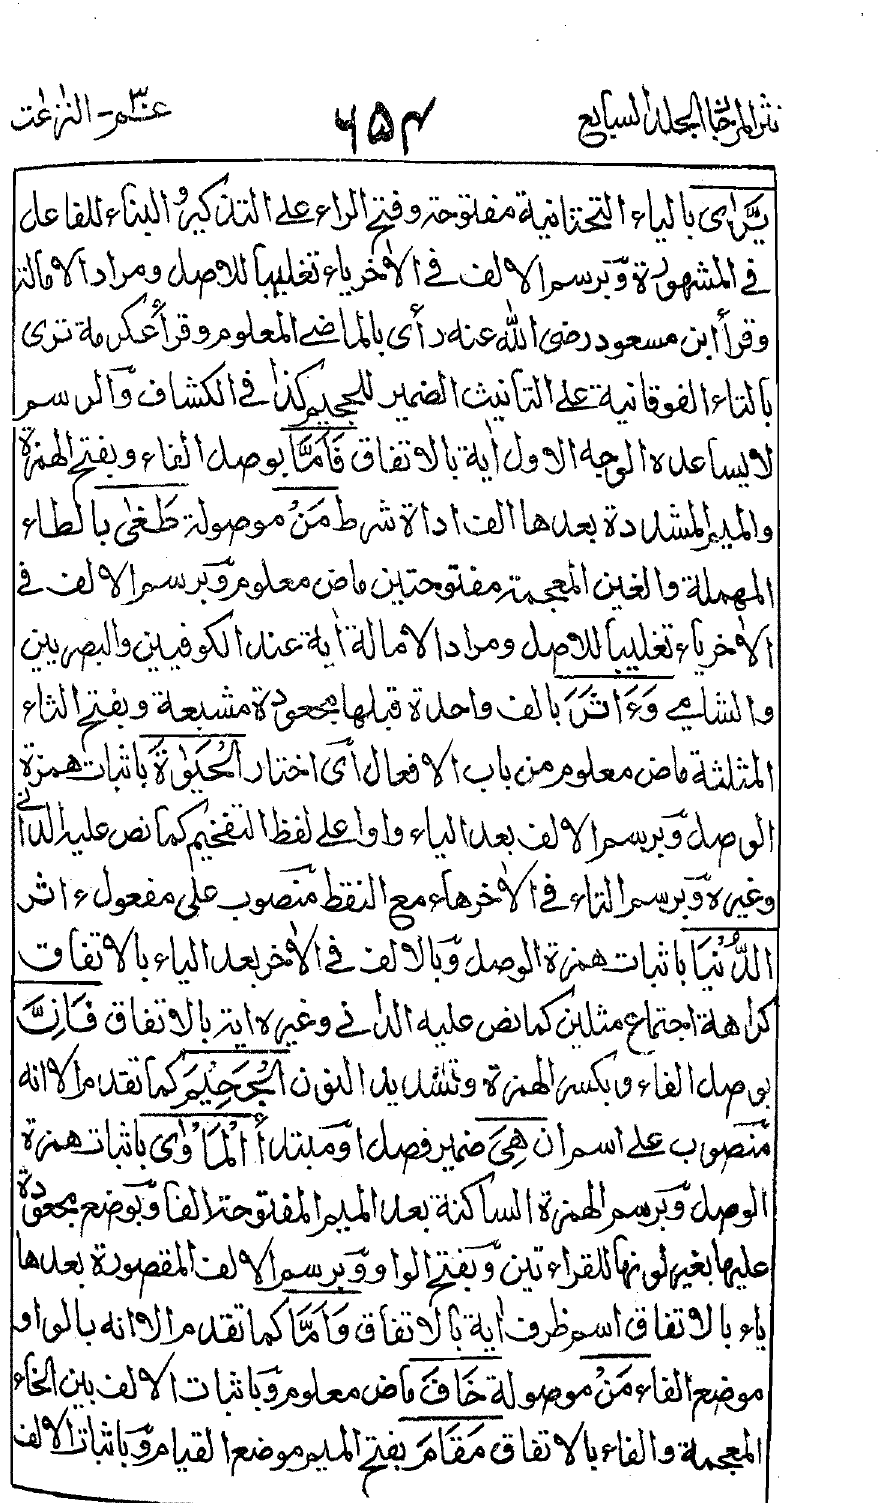 نثر المرجان المجلد السابع ۶۵۴ عم۳۰ - النزعت
يَّرٰى بالياء التحتانية مفتوحة وفتح الراء على التذكير والبناء للفاعل
فى المشهورة وبرسم الالف فى الاٰخر ياء تغليبا للاصل ومراد الامالة
وقرأ ابن مسعود رضى الله عنه رأى بالماضى المعلوم وقرأ عكرمة ترى
بالتاء الفوقانية على التأنيث الضمير للجحيم كذا فى الكشاف والرسم
لا يساعده الوجه الاول اٰية بالاتفاق فَاَمَّا بوصل الفاء وبفتح الهمزة
والميم المشددة بعدها الف اداة شرط مَنْ موصولة طَغٰى بالطاء
المهملة والغين المعجمة مفتوحتين ماض معلوم وبرسم الالف فى
الاٰخر ياء تغليبا للاصل ومراد الامالة اٰية عند الكوفيين والبصريين
والشامى وَءَاثَرَ بالف واحدة قبلها مجعودة مشبعة وبفتح الثاء
المثلثة ماض معلوم من باب الافعال اى اختار الْحَيٰوةَ باثبات همزة
الوصل وبرسم الالف بعد الياء واوا على لفظ التفخيم كما نص عليه الدانى
وغيره وبرسم التاء فى الاٰخر هاء مع النقط منصوب على مفعول ءاثر
الدُّنْيَا باثبات همزة الوصل وبالالف فى الاٰخر بعد الياء بالاتفاق
كراهة اجتماع مثلين كما نص عليه الدانى وغيره اية بالاتفاق فَاِنَّ
بوصل الفاء وبكسر الهمزة وتشديد النون الْجَحِيْمَ كما تقدم الا انه
منصوب على اسم ان هِىَ ضمير فصل او مبتدأ الْمَاْوٰى باثبات همزة
الوصل وبرسم الهمزة الساكنة بعد الميم المفتوحة الفا وبوضع مجعودة
عليها بغير لونها للقراءتين وبفتح الواو وبرسم الالف المقصورة بعدها
ياء بالاتفاق اسم ظرف اٰية بالاتفاق وَاَمَّا كما تقدم الا انه بالواو
موضع الفاء مَنْ موصولة خَافَ ماض معلوم وباثبات الالف بين الخاء
المعجمة والفاء بالاتفاق مَقَامَ بفتح الميم موضع القيام وباثبات الالف